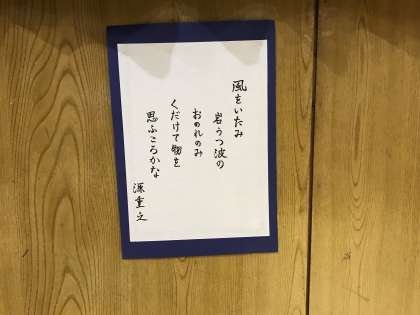 風をいたみ
岩うつ波の
おのれのみ
くだけて物を
思ふころかな
源重之